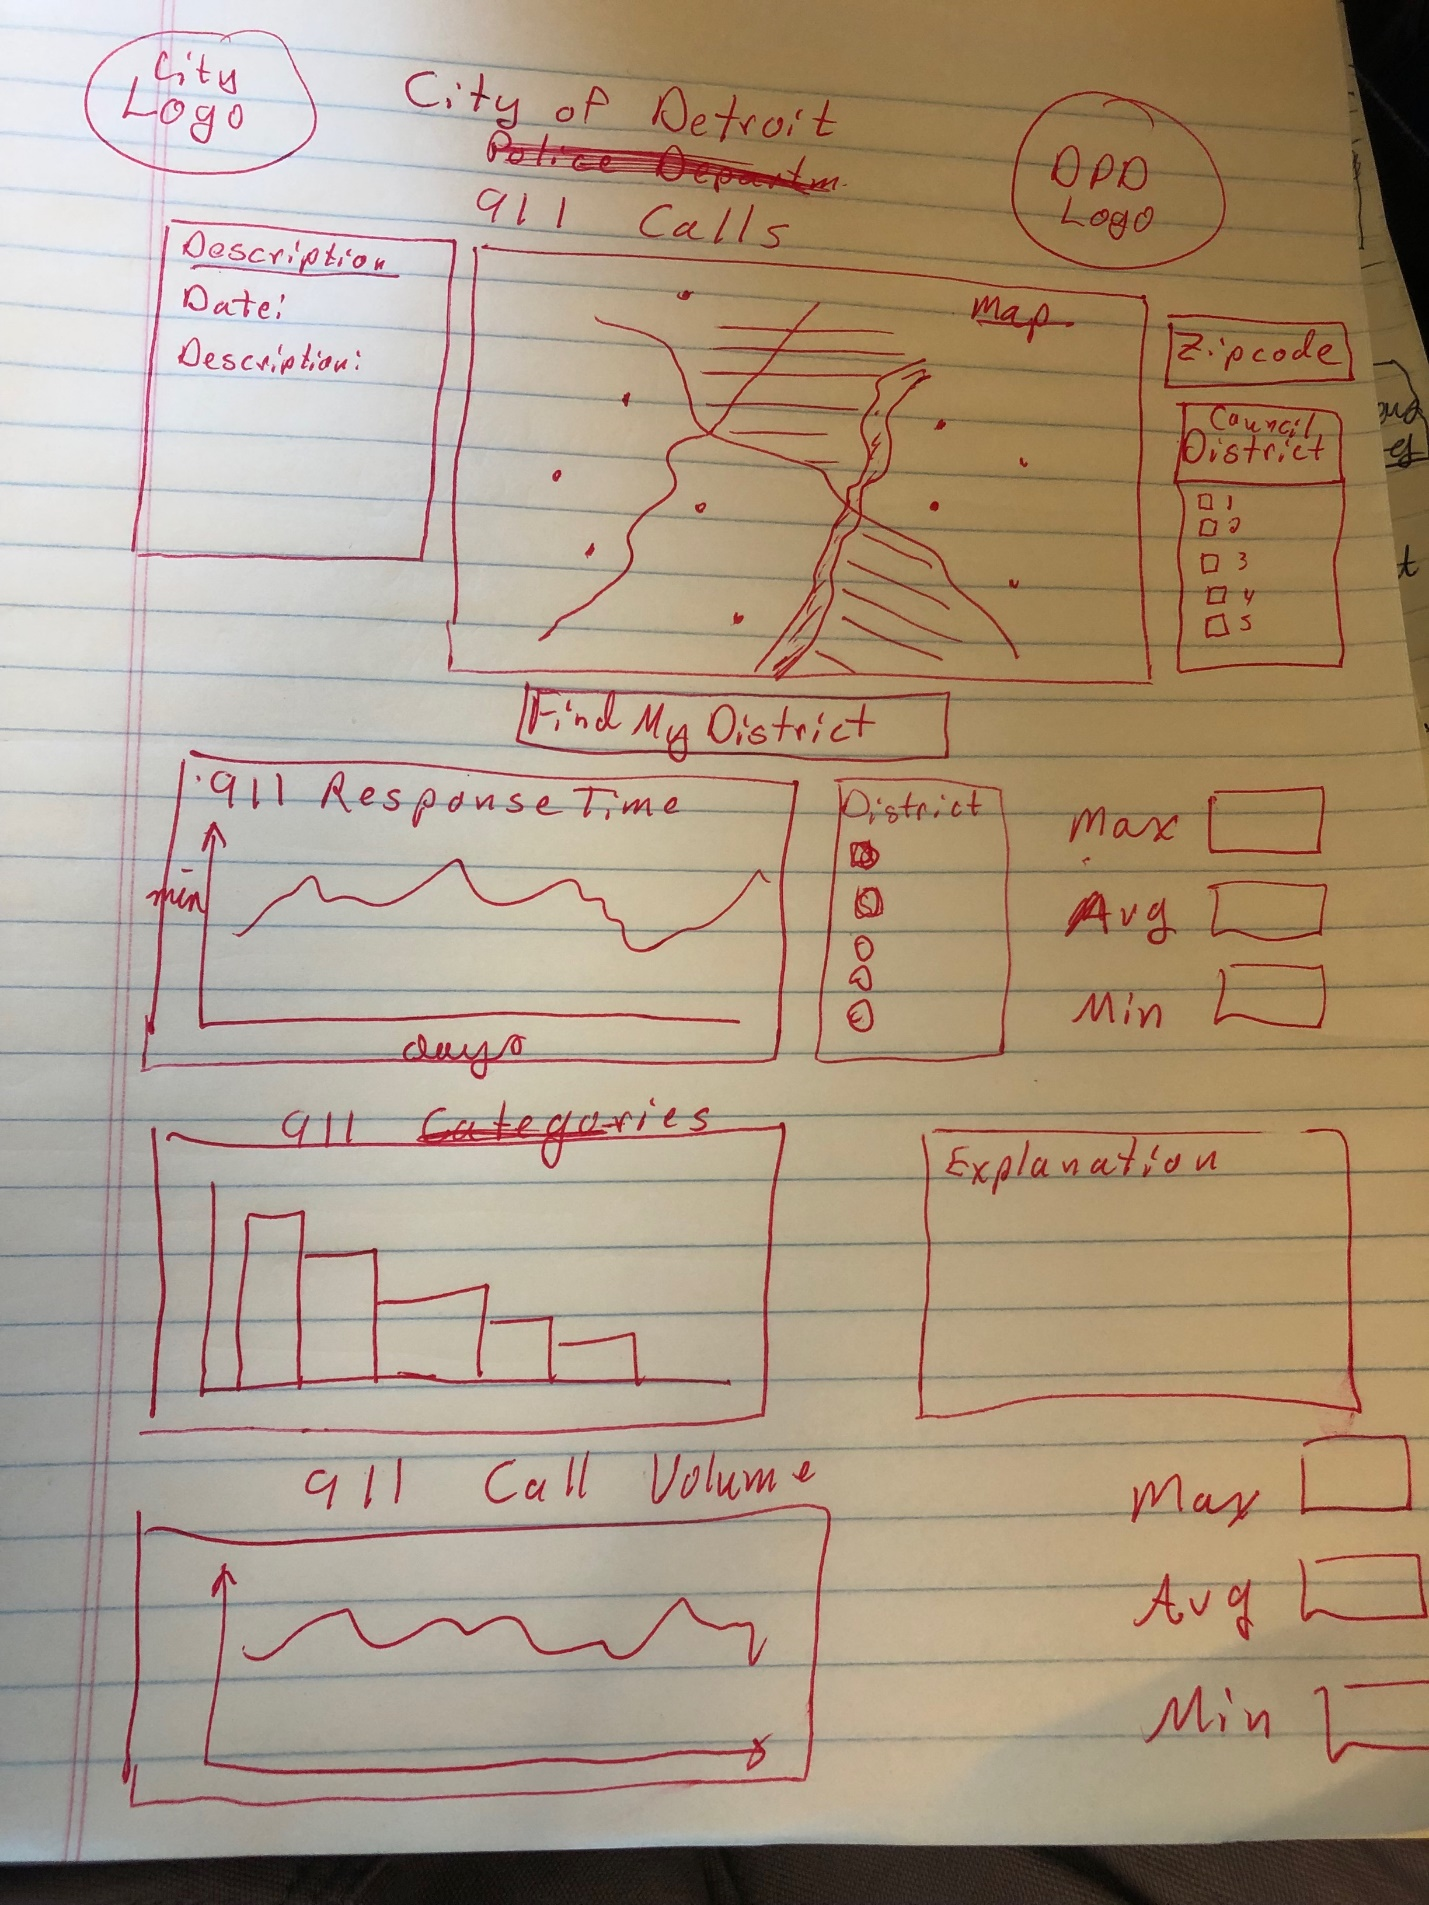 City
Logo
City of Detroit
Police Departm.
911 Calls
DPD
Logo
Description
Date:
Description:
Map
Zipcode
Council
District
1
2
3
4
5
Find My District
911 Response Time
min
days
District
Max
Avg
Min
911 Categories
Explanation
911 Call Volume
Max
Avg
Min